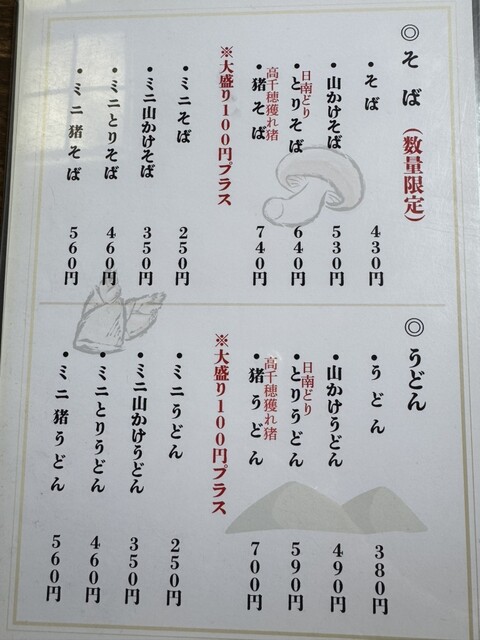 ◎そば(数量限定)
・そば 430円
・山かけそば 530円
日南どり
・とりそば 640円
高千穂獲れ猪
・猪そば 740円
※大盛り100円プラス
・ミニそば 250円
・ミニ山かけそば 350円
・ミニとりそば 460円
・ミニ猪そば 560円
◎うどん
・うどん 380円
・山かけうどん 490円
日南どり
・とりうどん 590円
高千穂獲れ猪
・猪うどん 700円
※大盛り100円プラス
・ミニうどん 250円
・ミニ山かけうどん 350円
・ミニとりうどん 460円
・ミニ猪うどん 560円